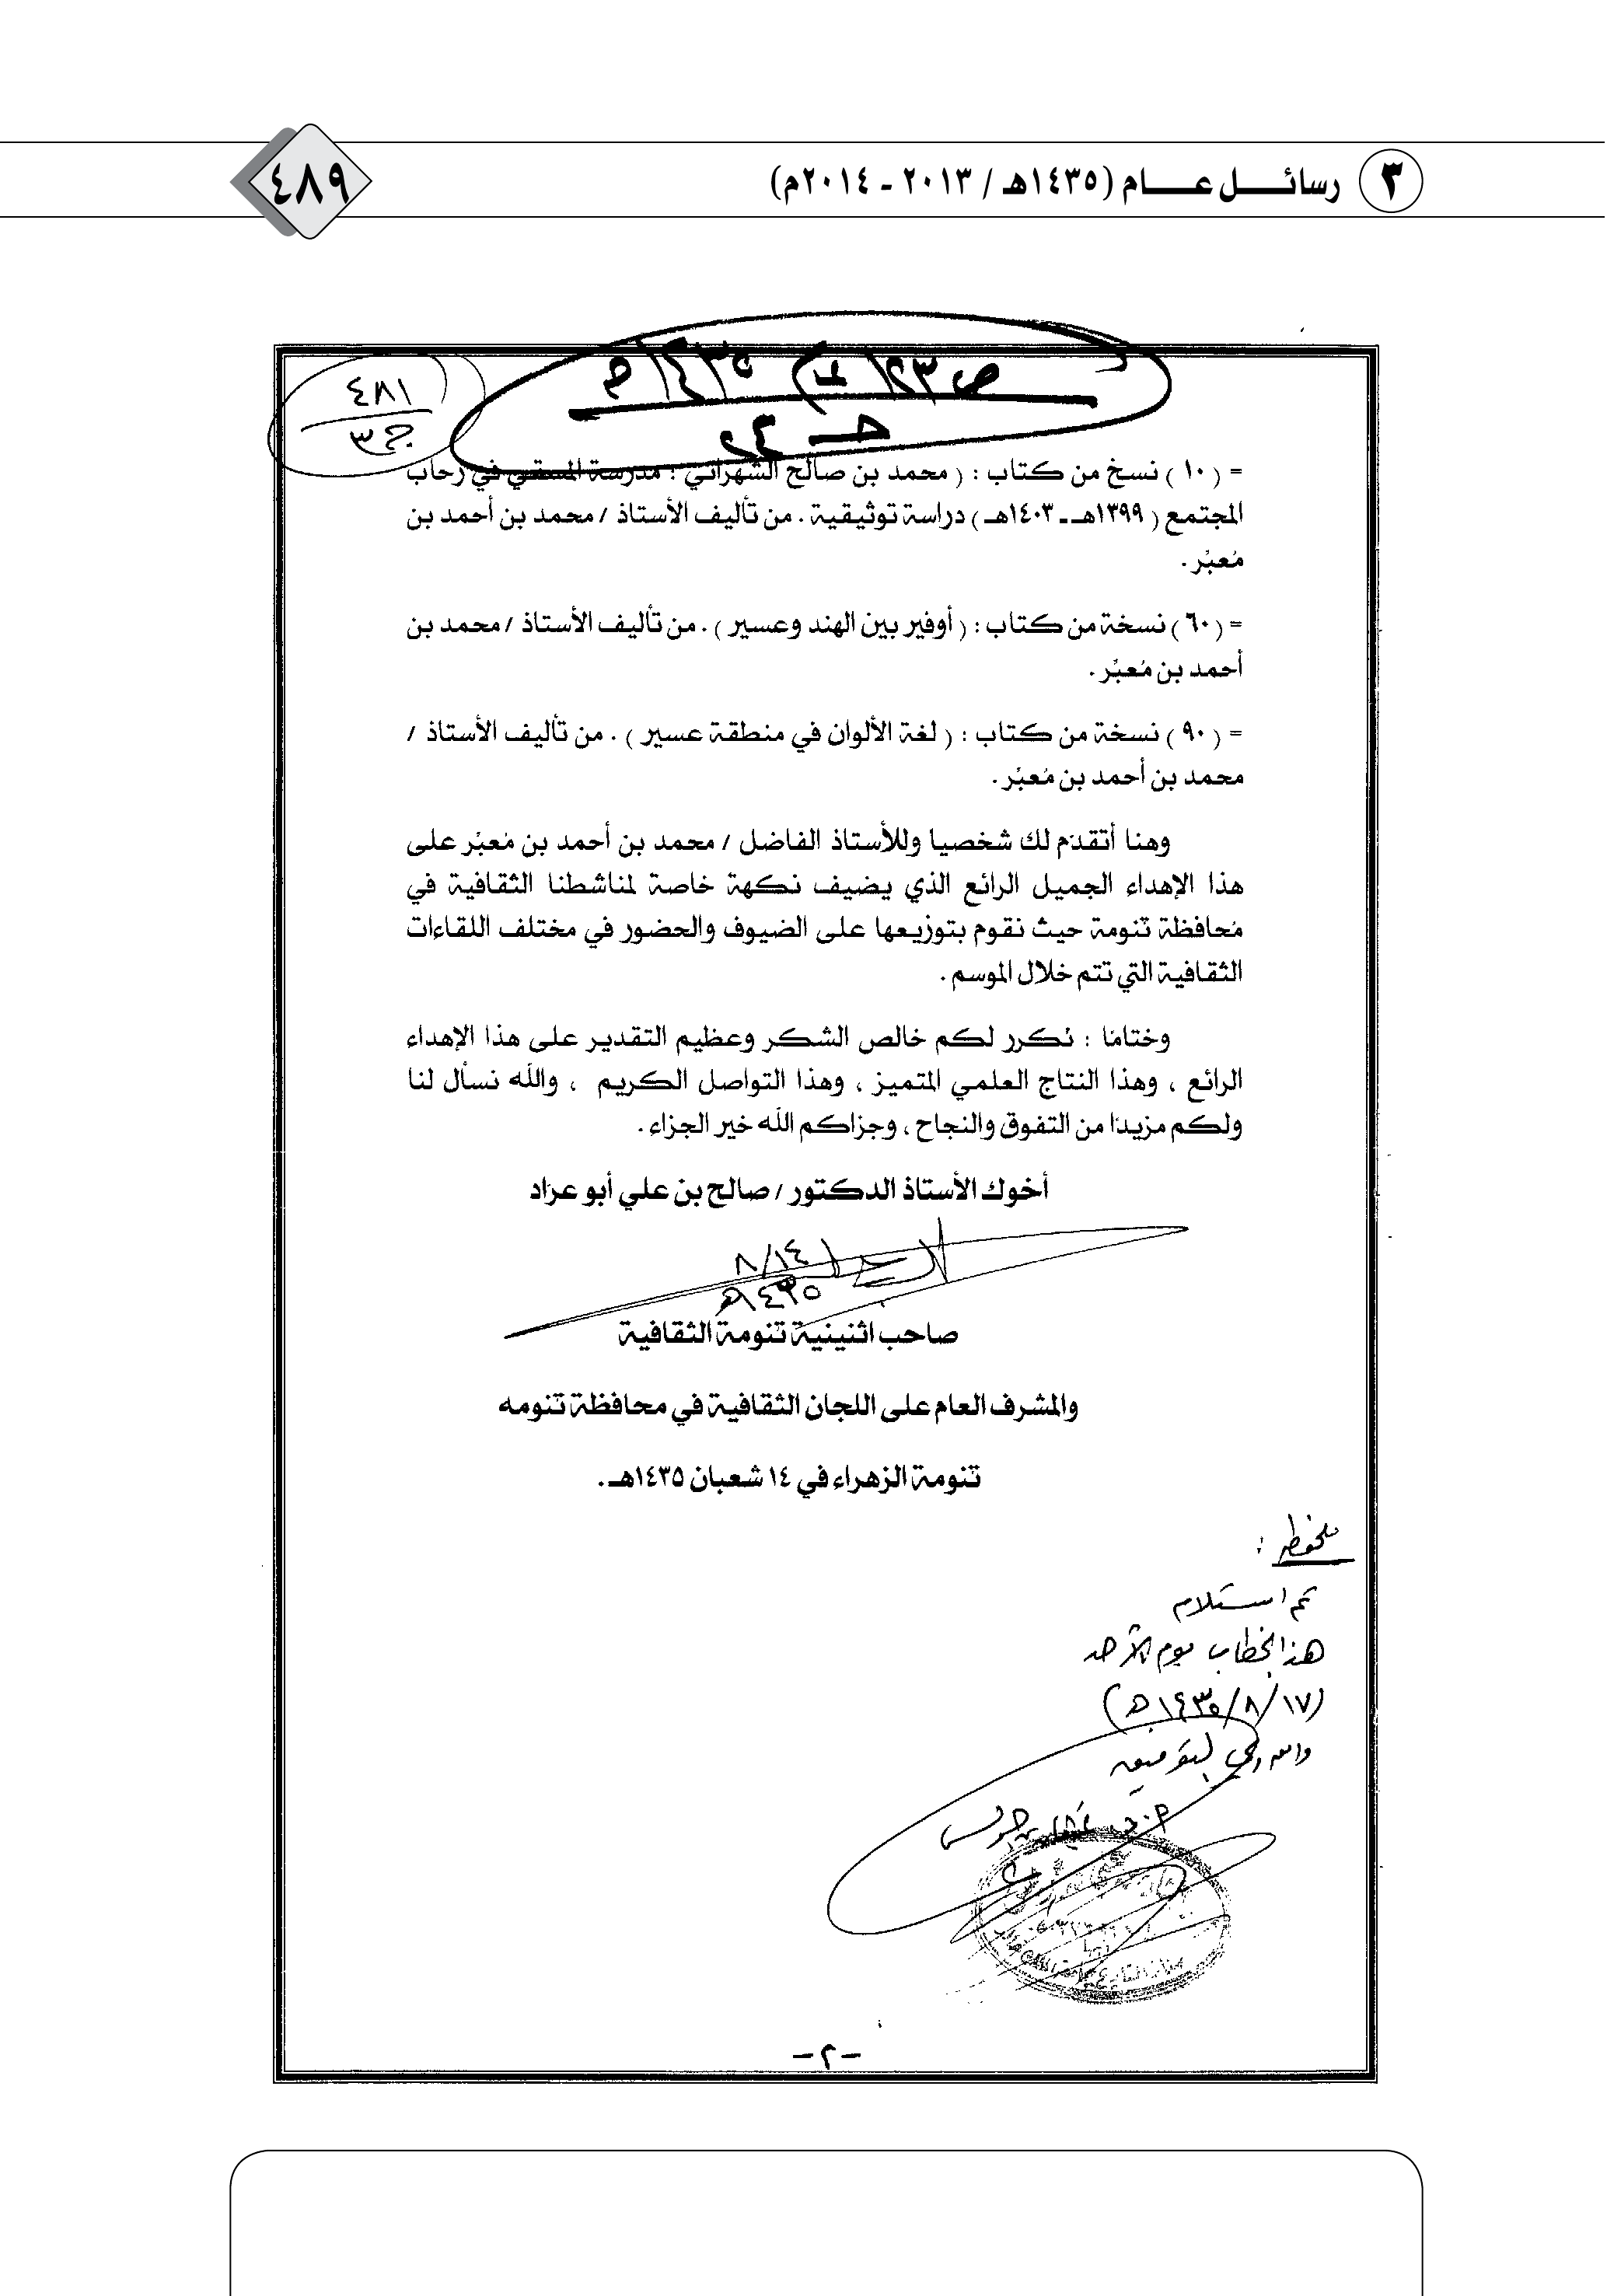 ٣ رسائل عام (١٤٣٥هـ / ٢٠١٣ - ٢٠١٤م)
٤٨٩
٤٨١
ج ٣
= ( ١٠ ) نسخ من كتاب : ( محمد بن صالح الشهراني : مدرسة المسقي في رحاب
المجتمع ( ١٣٩٩هـ ـ ١٤٠٣هـ ) دراسة توثيقية . من تأليف الأستاذ / محمد بن أحمد بن
مُعبّر .
= ( ٦٠ ) نسخة من كتاب : ( أوفير بين الهند وعسير ) . من تأليف الأستاذ / محمد بن
أحمد بن مُعبّر .
= ( ٩٠ ) نسخة من كتاب : ( لغة الألوان في منطقة عسير ) . من تأليف الأستاذ /
محمد بن أحمد بن مُعبّر .
وهنا أتقدّم لك شخصيا وللأستاذ الفاضل / محمد بن أحمد بن مُعبّر على
هذا الإهداء الجميل الرائع الذي يضيف نكهة خاصة لمناشطنا الثقافية في
مُحافظة تنومة حيث نقوم بتوزيعها على الضيوف والحضور في مختلف اللقاءات
الثقافية التي تتم خلال الموسم .
وختامًا : نُكرر لكم خالص الشكر وعظيم التقدير على هذا الإهداء
الرائع ، وهذا النتاج العلمي المتميز ، وهذا التواصل الكريم ، والله نسأل لنا
ولكم مزيدًا من التفوق والنجاح ، وجزاكم الله خير الجزاء .
أخوك الأستاذ الدكتور / صالح بن علي أبو عرّاد
٨/١٤
١٤٣٥هـ
صاحب اثنينية تنومة الثقافية
والمشرف العام على اللجان الثقافية في محافظة تنومه
تنومة الزهراء في ١٤ شعبان ١٤٣٥هـ .
ملحوظة :
تم استلام
هذا الخطاب يوم الأحد
(١٧/٨/١٤٣٥هـ)
والله ولي التوفيق
- ٢ -